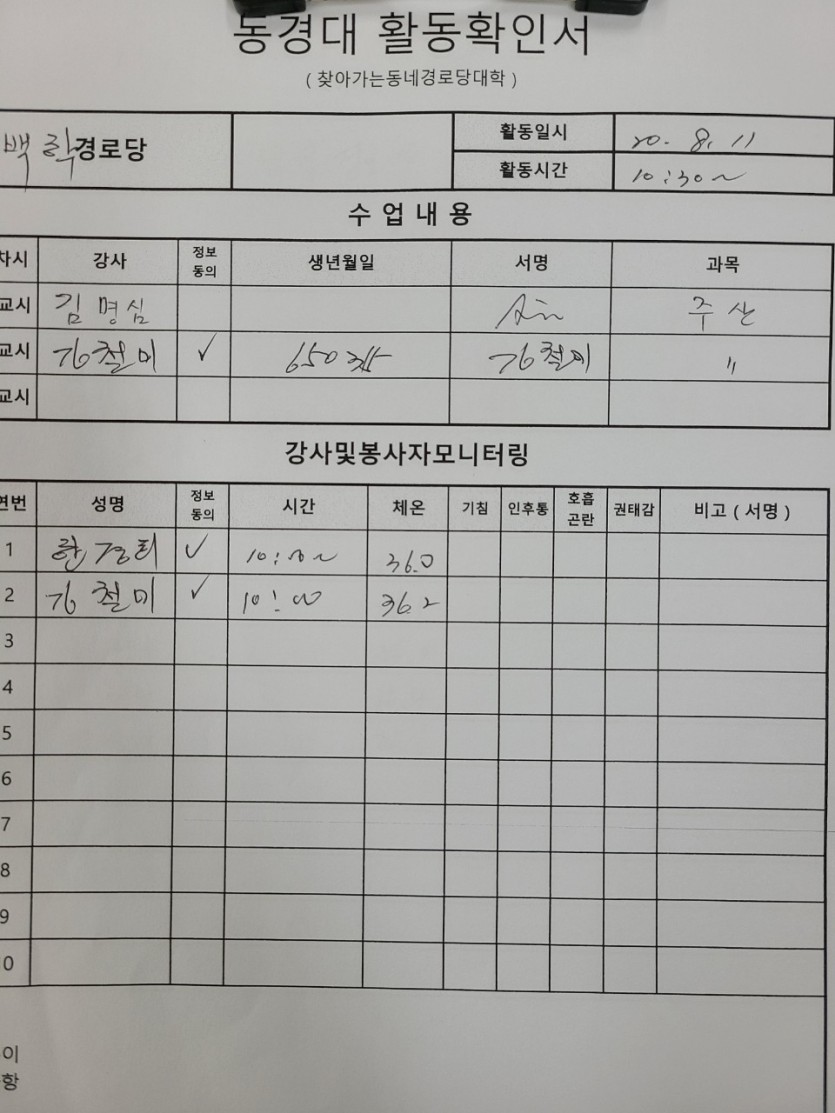 동경대 활동확인서
( 찾아가는동네경로당대학 )
백학경로당 활동일시 20. 8. 11
활동시간 10:30~
수 업 내 용
차시 강사 정보동의 생년월일 서명 과목
교시 김명심 주산
교시 강철미 ✓ 강철미 〃
교시
강사및봉사자모니터링
연번 성명 정보동의 시간 체온 기침 인후통 호흡곤란 권태감 비고 ( 서명 )
1 ✓ 36.0
2 강철미 ✓ 10:00 36.2
3
4
5
6
7
8
9
0
이
항